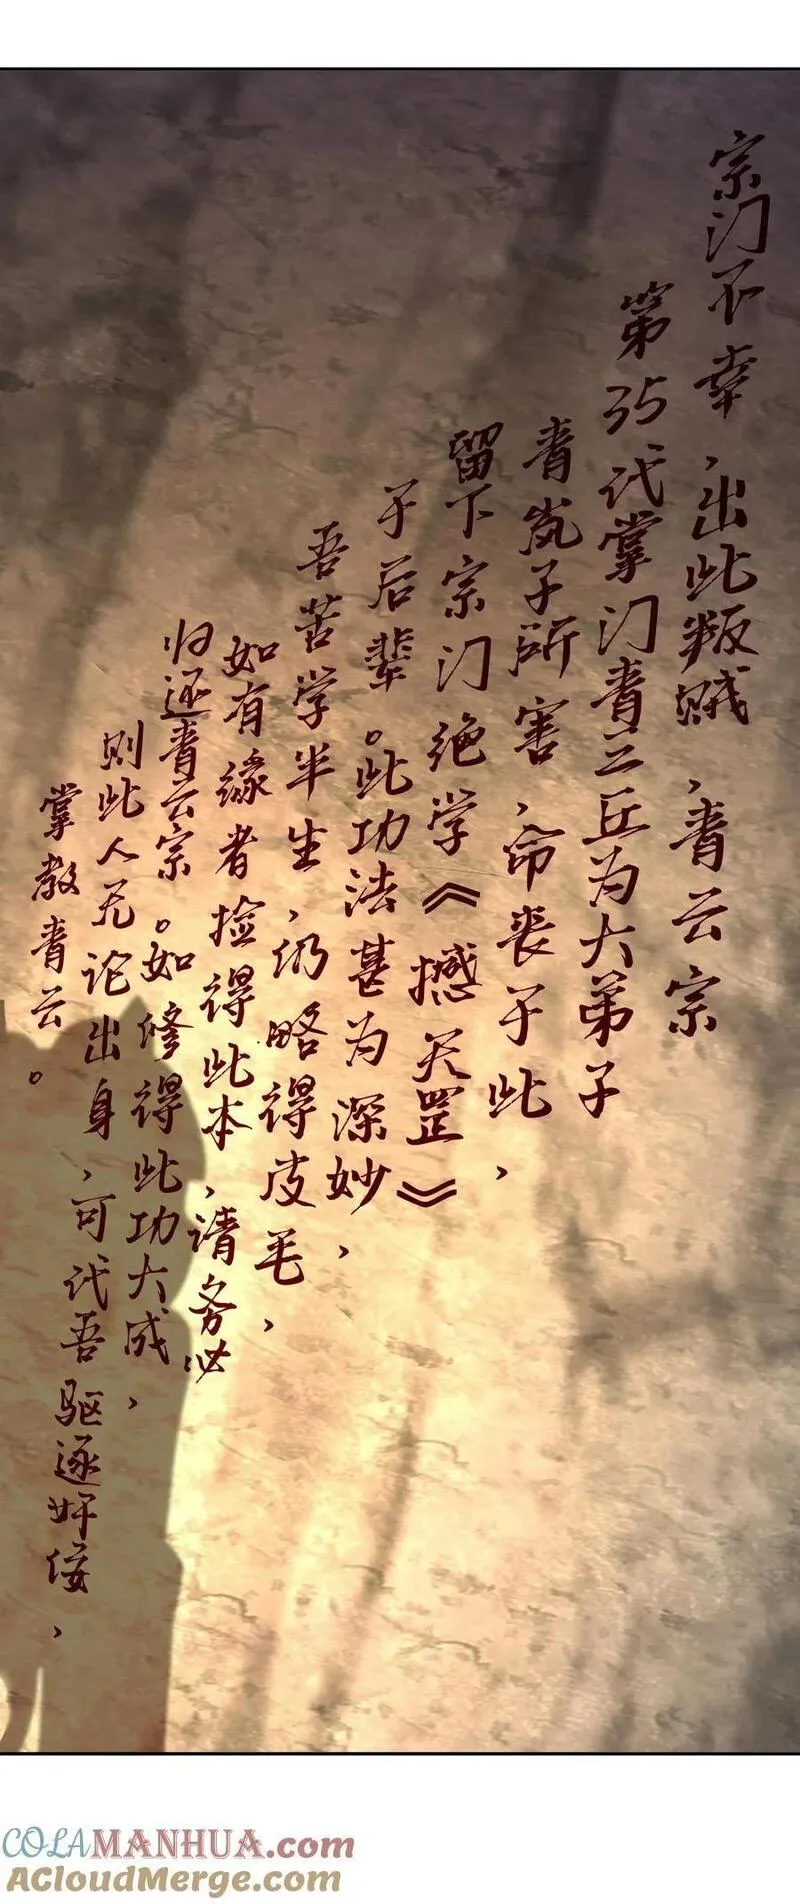 宗门不幸，出此叛贼，青云宗
第35代掌门青三丘为大弟子
青岚子所害，命丧于此，
留下宗门绝学《撼天罡》
于后辈。此功法甚为深妙，
吾苦学半生，仍略得皮毛，
如有缘者捡得此本，请务必
归还青云宗。如修得此功大成，
则此人无论出身，可代吾驱逐奸佞，
掌教青云。
COLAMANHUA.com
ACloudMerge.com